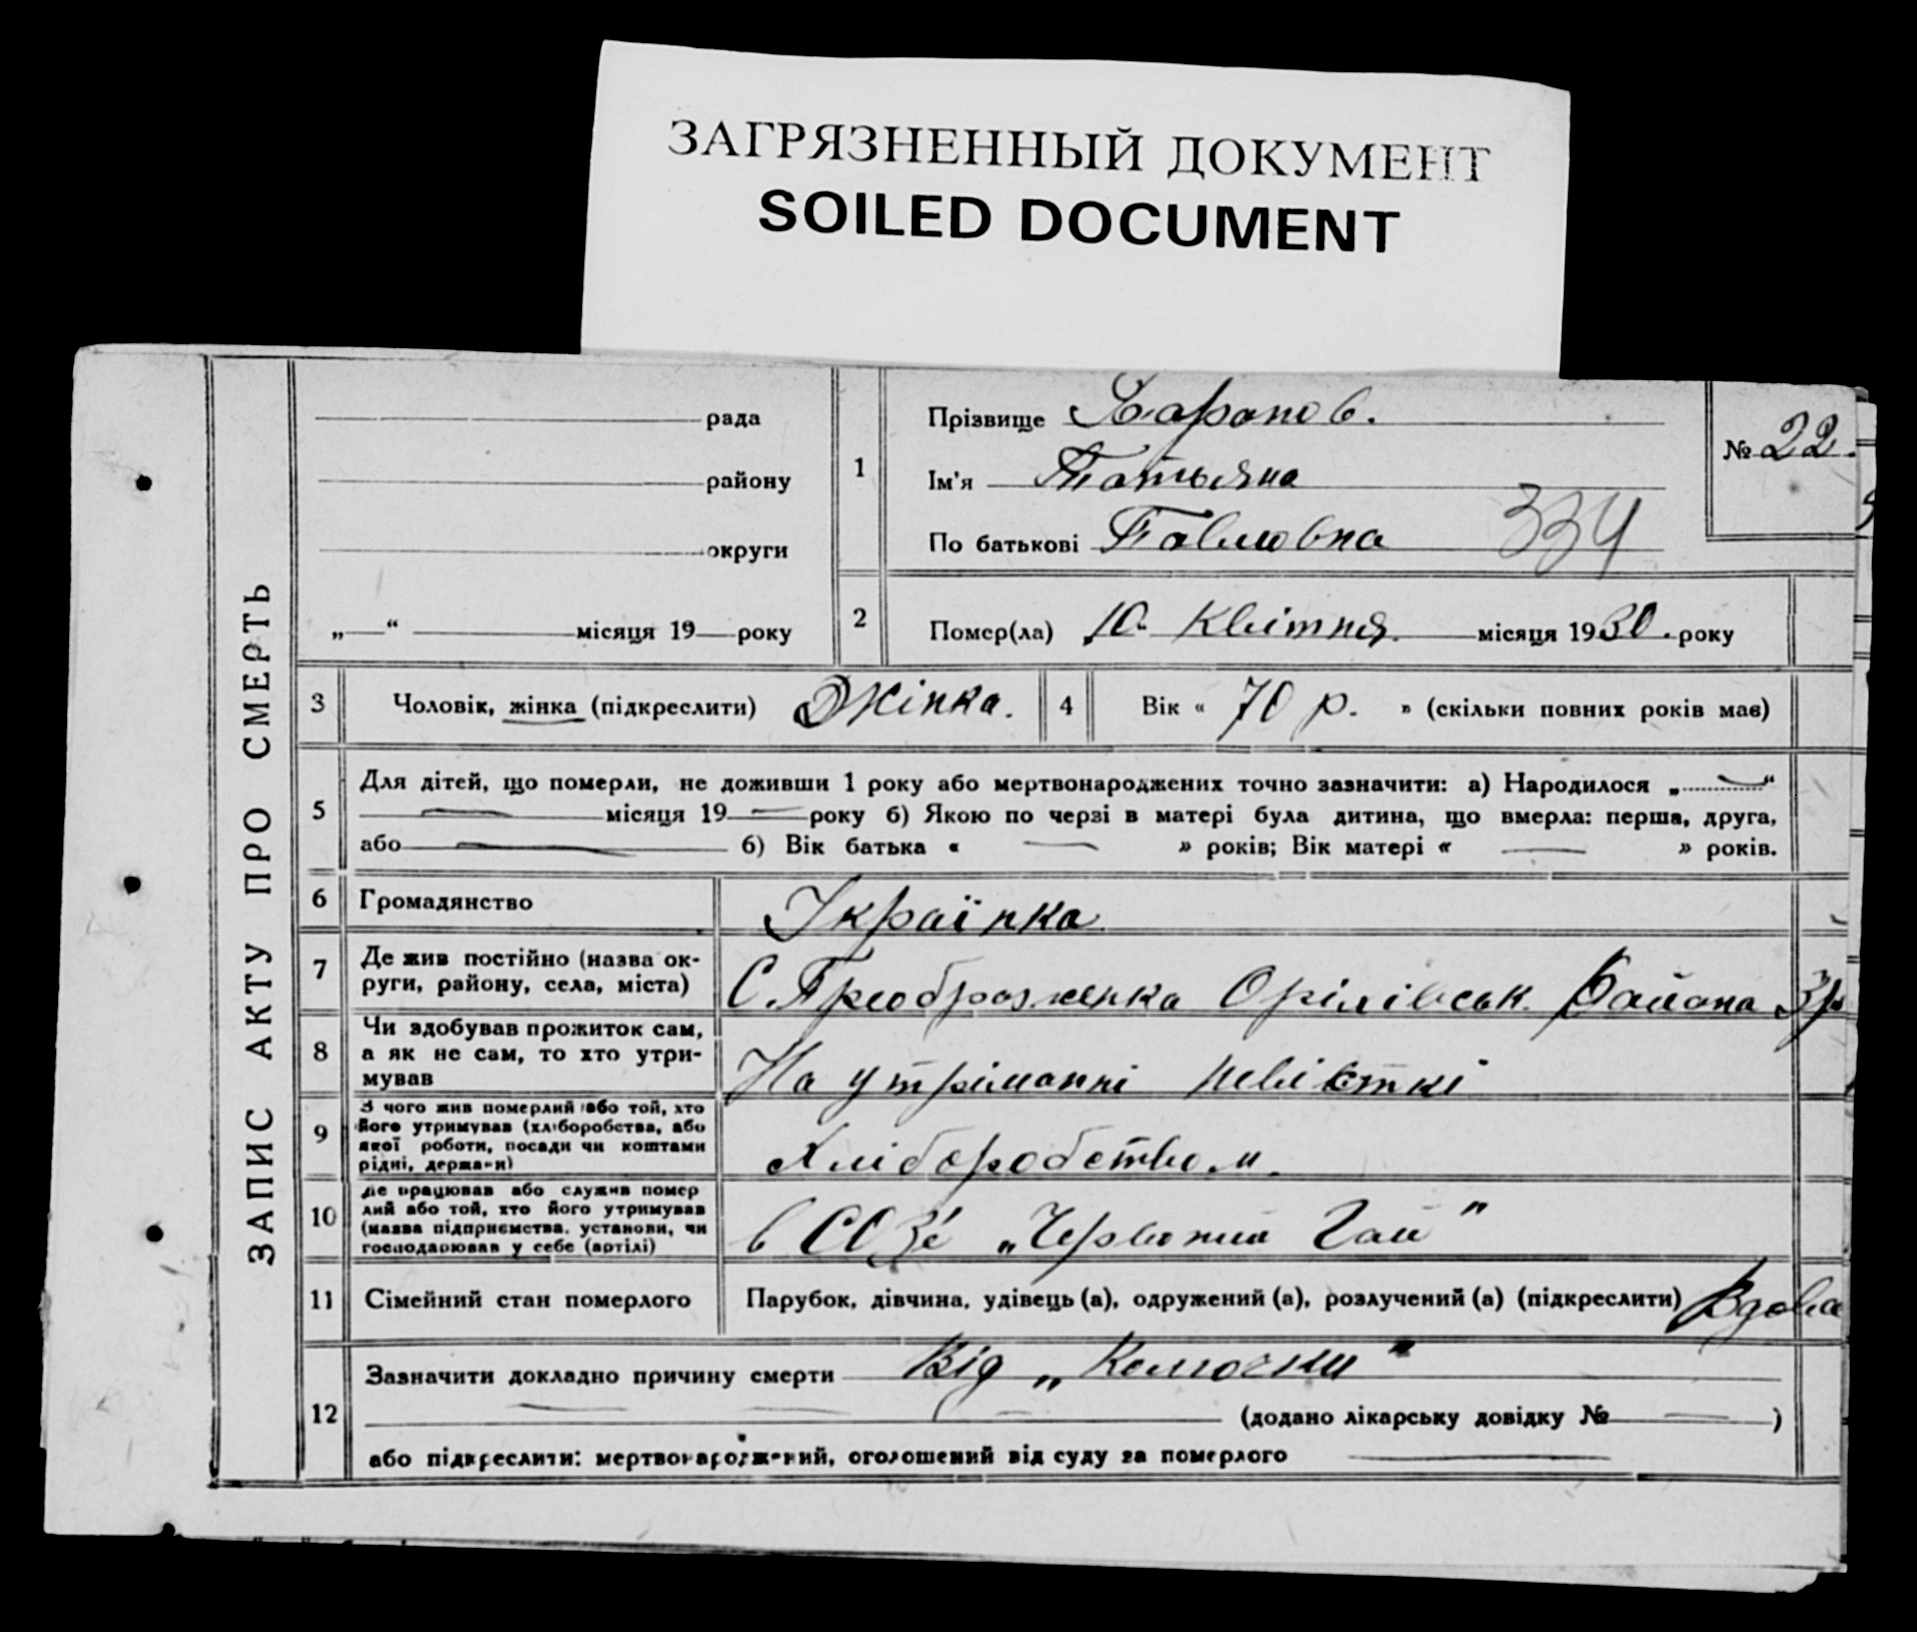 ЗАГРЯЗНЕННЫЙ ДОКУМЕНТ
SOILED DOCUMENT
ЗАПИС АКТУ ПРО СМЕРТЬ
рада
району
округи
„ “ місяця 19 року
1
Прізвище Харапов.
Ім'я Татьяна
По батькові Павловна
334
№ 22.
2 Помер(ла) 10. Квітня. місяця 1930. року
3 Чоловік, жінка (підкреслити) Жінка.
4 Вік « 70 р. » (скільки повних років має)
5 Для дітей, що померли, не доживши 1 року або мертвонароджених точно зазначити: а) Народилося „ — “
— місяця 19 — року б) Якою по черзі в матері була дитина, що вмерла: перша, друга,
або — б) Вік батька « — » років; Вік матері « — » років.
6 Громадянство Українка.
7 Де жив постійно (назва ок-
руги, району, села, міста) С. Преображенка Орілівськ. Району
8 Чи здобував прожиток сам,
а як не сам, то хто утри-
мував На утріманні невісткі
9 З чого жив померлий або той, хто
його утримував (хліборобства, або
якої роботи, посади чи коштами
рідні, держави) Хліборобством.
10 Де працював або служив помер
лий або той, хто його утримував
(назва підприємства, установи, чи
господарював у себе (артілі) в СОЗ'е „Червоний Гай"
11 Сімейний стан померлого Парубок, дівчина, удівець (а), одружений (а), розлучений (а) (підкреслити) Вдова
12 Зазначити докладно причину смерти Від „Колючки"
— — — (додано лікарську довідку № — )
або підкреслити: мертвонароджений, оголошений від суду за померлого —